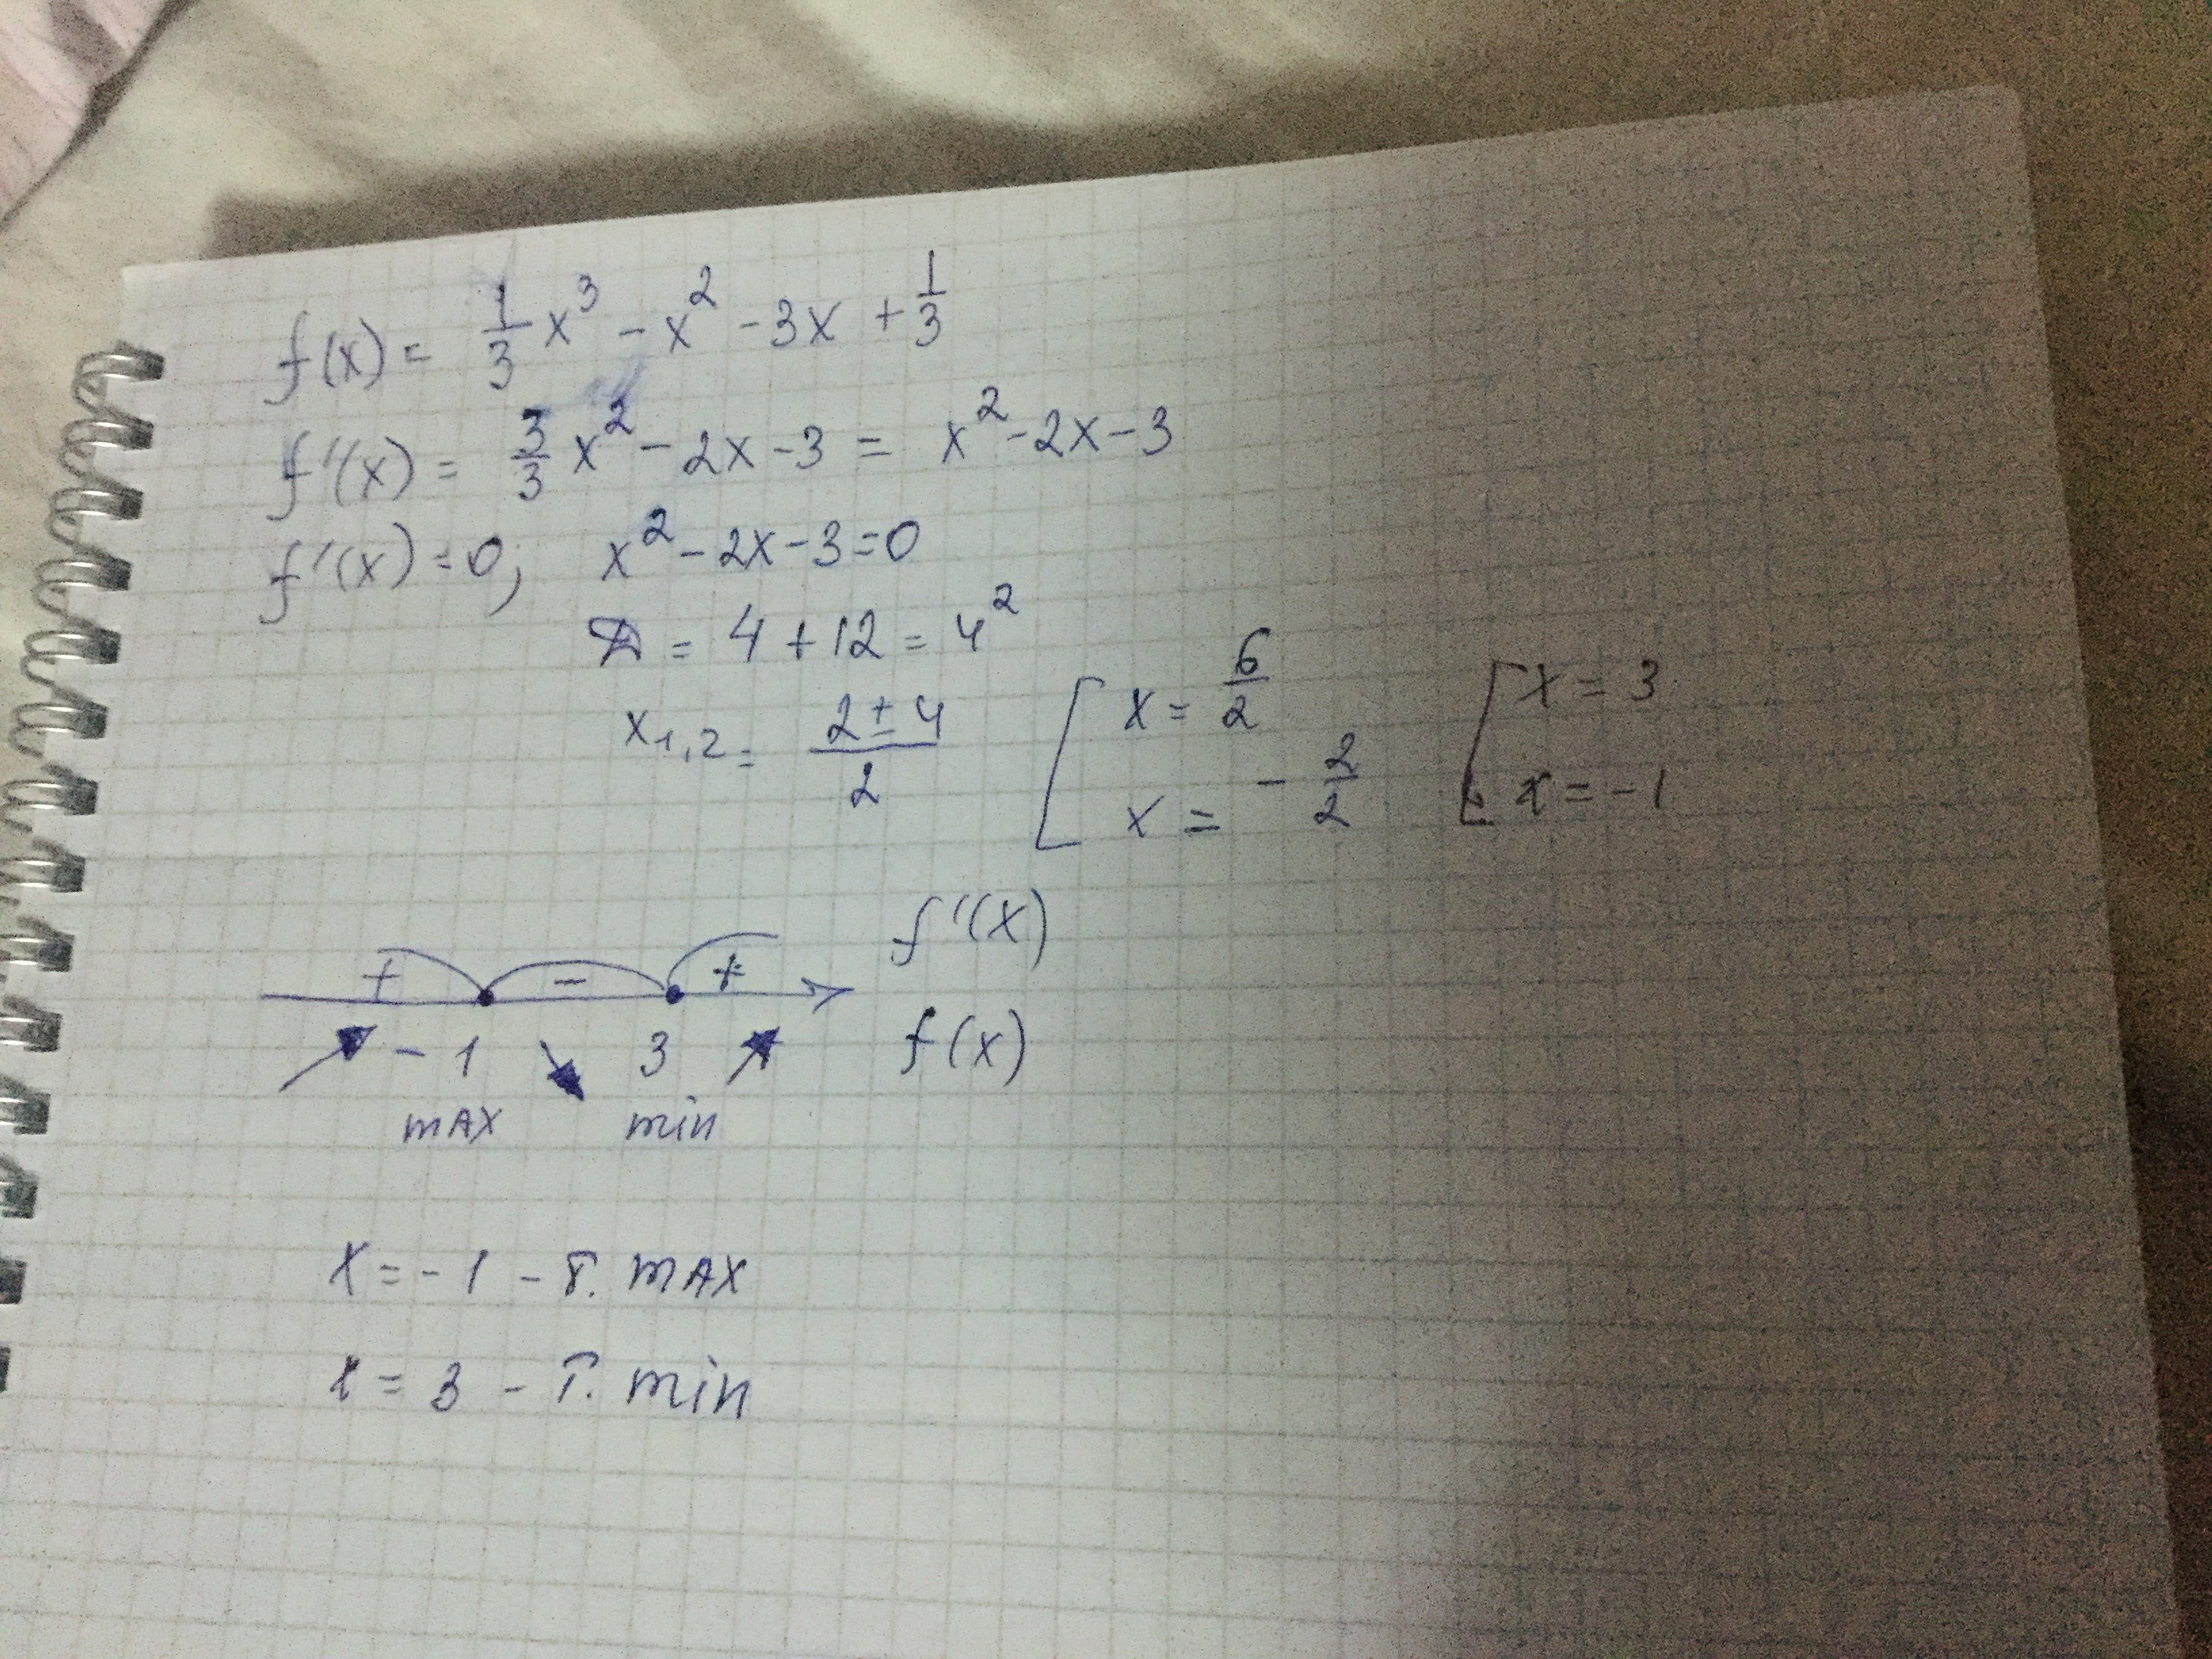 f(x) = 1/3 x³ - x² - 3x + 1/3
f'(x) = 3/3 x² - 2x - 3 = x² - 2x - 3
f'(x) = 0; x² - 2x - 3 = 0
D = 4 + 12 = 4²
x₁,₂ = (2 ± 4)/2 [ x = 6/2 [ x = 3
x = - 2/2 x = -1
+ - + f'(x)
-1 3 f(x)
max min
x = -1 - т. max
x = 3 - т. min